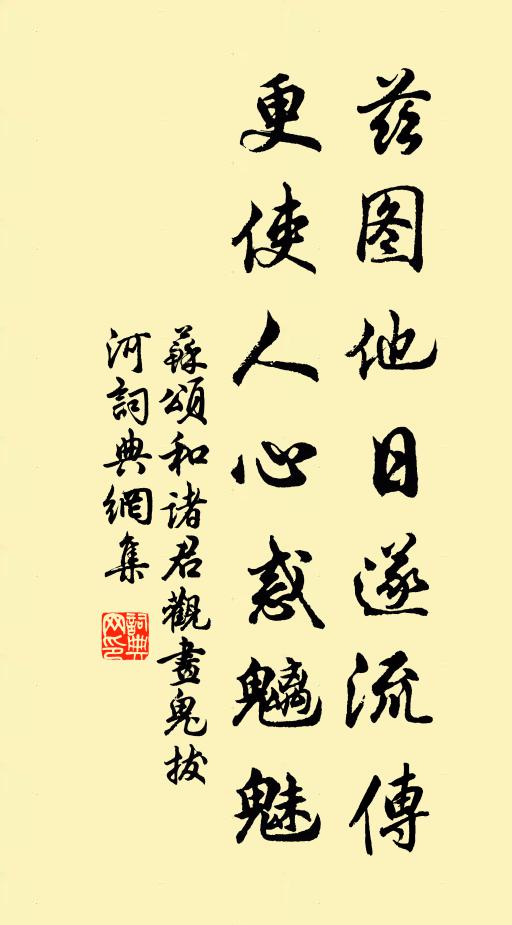 茲圖他日遂流傳
更使人心惑魑魅
蘇頌和諸君觀畫鬼拔
河詞典網集
詞典
网印